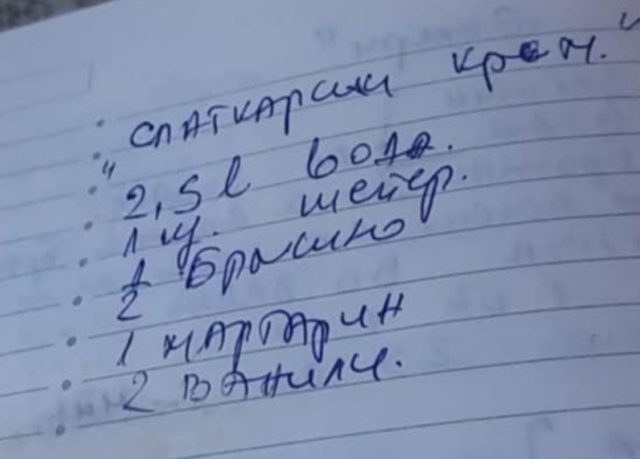 "СЛАТКАРСКИ крем."
2,5 l вода.
1 ч. шеќер.
1/2 Брашно
1 МАРГАРИН
2 ВАНИЛИ.